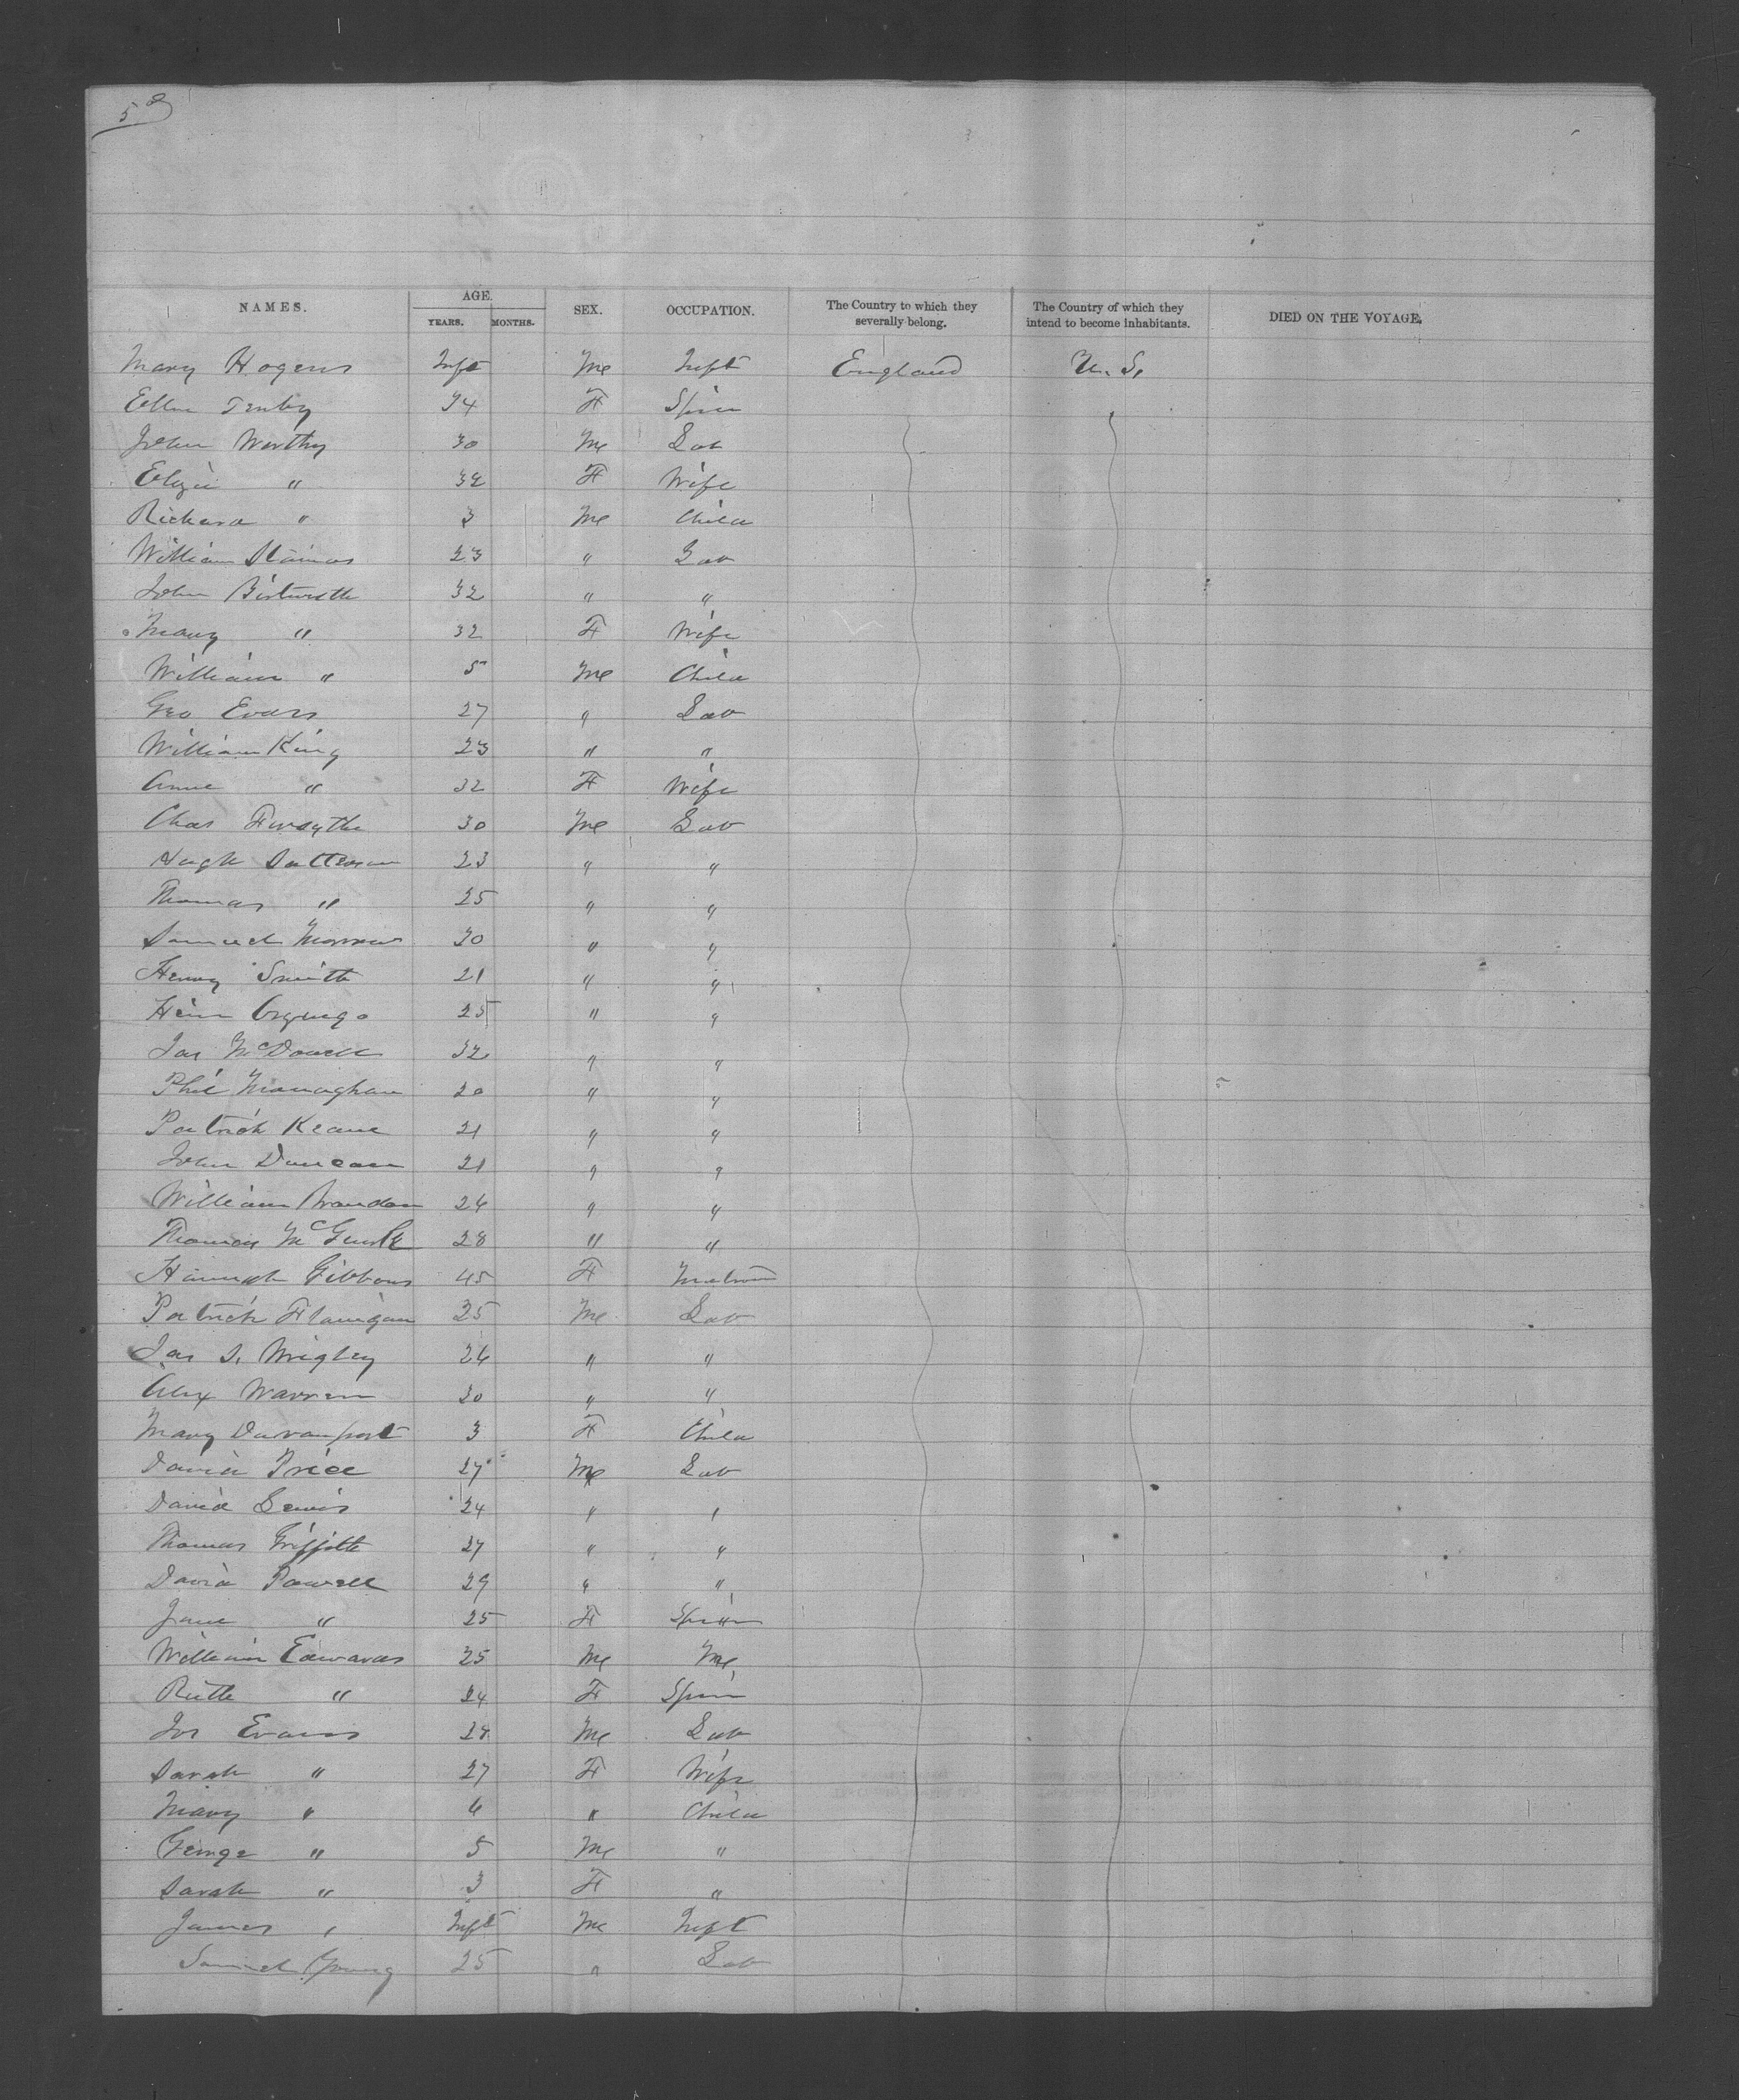 5
NAMES. AGE. YEARS. MONTHS. SEX. OCCUPATION. The Country to which they severally belong. The Country of which they intend to become inhabitants. DIED ON THE VOYAGE,
Mary Hogens Inft Me Inft England U. S.
Ellen Tenby 34 F Spin
John Worthy 30 Me Lab
Eliza " 32 F Wife
Richard " 3 Me Child
William Stainas 23 " Lab
John Birtwistle 32 " "
Mary " 32 F Wife
William " 5 Me Child
Geo Evans 27 " Lab
William King 23 " "
Anne " 32 F Wife
Chas Forsythe 30 Me Lab
Hugh 23 " "
Thomas " 25 " "
Samuel Morrow 30 " "
Henry Smith 21 " "
25 " "
Jas McDowell 32 " "
Phil Monaghan 20 " "
Patrick Keane 21 " "
John Duncan 21 " "
William Brandon 24 " "
Thomas McGurk 28 " "
Hannah Gibbons 45 F Matron
Patrick Flanigan 25 Me Lab
Jas S. Wrigley 26 " "
Alex Warren 30 " "
Mary Davanport 3 F Child
David Price 27 Me Lab
David Lewis 24 " "
Thomas Griffith 27 " "
David Powell 29 " "
Jane " 25 F Spin
William Edwards 25 Me Me
Ruth " 24 F Spin
Jos Evans 28 Me Lab
Sarah " 27 F Wife
Mary " 6 " Child
George " 5 Me "
Sarah " 3 F "
James " Inft Me Inft
Samuel Young 25 " Lab